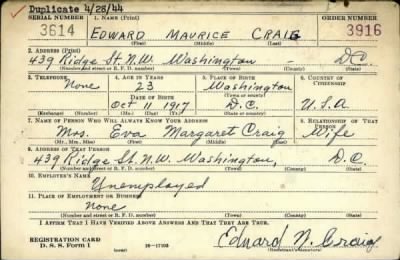 Duplicate 4/28/44
SERIAL NUMBER 1. NAME (Print) ORDER NUMBER
3614 EDWARD MAURICE CRAIG 3916
(First) (Middle) (Last)
2. ADDRESS (Print)
439 Ridge St. N.W. Washington - D.C.
(Number and street or R. F. D. number) (Town) (County) (State)
3. TELEPHONE 4. AGE IN YEARS 5. PLACE OF BIRTH 6. COUNTRY OF CITIZENSHIP
None 23 Washington
DATE OF BIRTH (Town or county)
Oct 11 1917 D.C. U.S.A
(Exchange) (Number) (Mo.) (Day) (Yr.) (State or country)
7. NAME OF PERSON WHO WILL ALWAYS KNOW YOUR ADDRESS 8. RELATIONSHIP OF THAT PERSON
Mrs. Eva Margaret Craig Wife
(Mr., Mrs., Miss) (First) (Middle) (Last)
9. ADDRESS OF THAT PERSON
439 Ridge St. N.W. Washington, D.C.
(Number and street or R. F. D. number) (Town) (County) (State)
10. EMPLOYER'S NAME
Unemployed
11. PLACE OF EMPLOYMENT OR BUSINESS
None
(Number and street or R. F. D. number) (Town) (County) (State)
I AFFIRM THAT I HAVE VERIFIED ABOVE ANSWERS AND THAT THEY ARE TRUE.
REGISTRATION CARD
D. S. S. Form 1 16-17105 Edward M. Craig
(Registrant's signature)